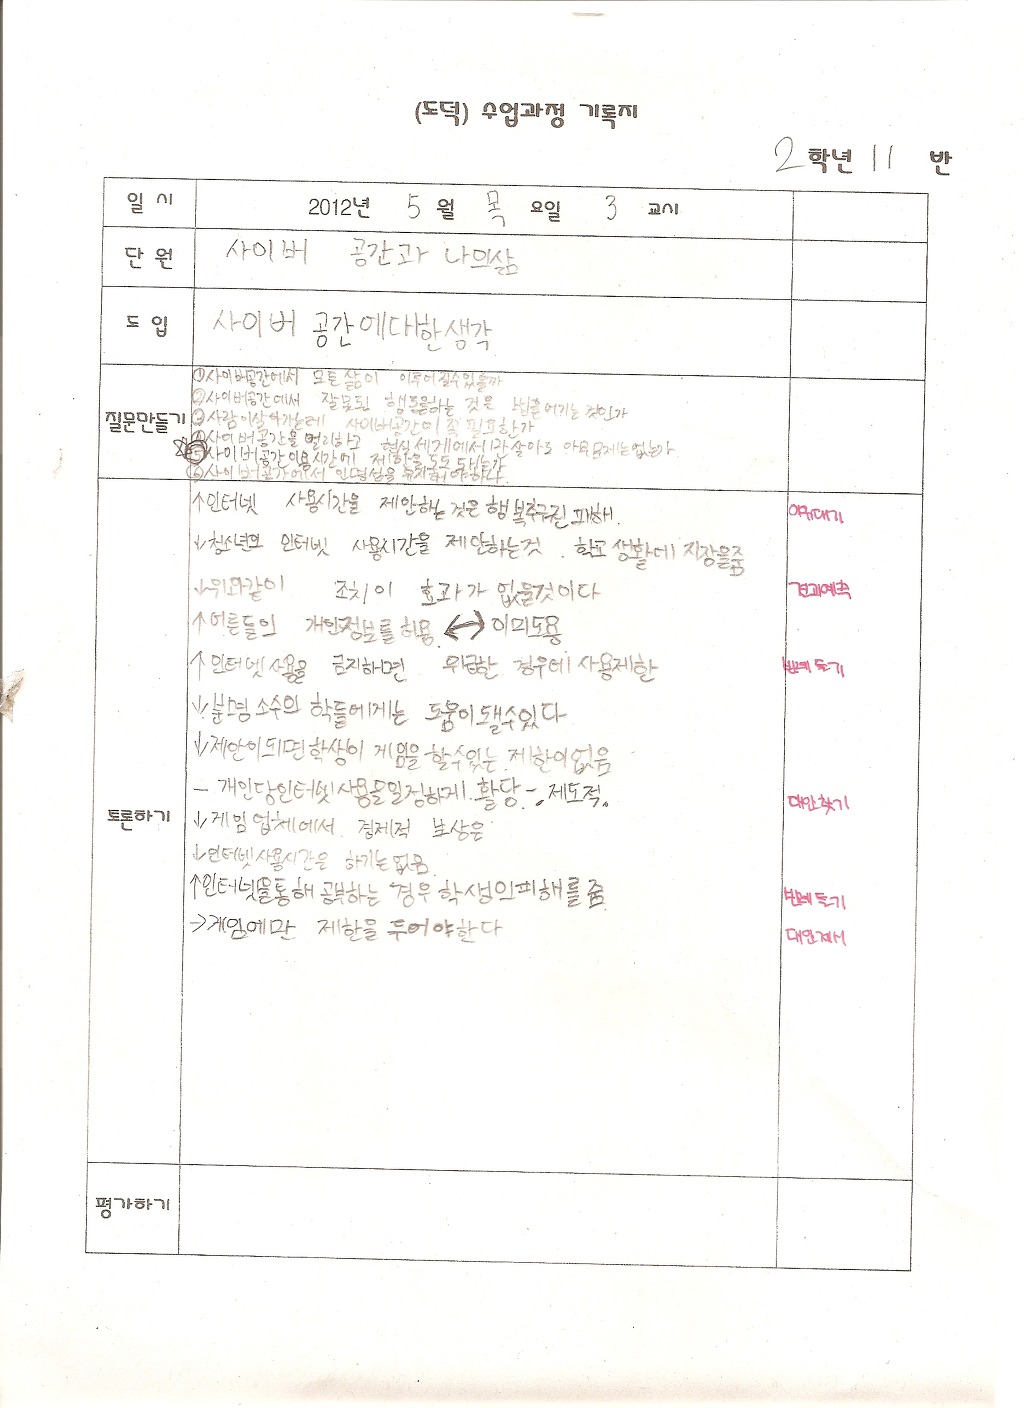 (도덕) 수업과정 기록지
2 학년 11 반
일 시 2012년 5 월 목 요일 3 교시
단 원 사이버 공간과 나의삶
도 입 사이버 공간에대한생각
질문만들기
①사이버공간에서 모든 삶이 이루어질수있을까
②사이버공간에서 잘못된 행동을하는 것은 법을어기는것인가
③사람이살아가는데 사이버공간이 꼭 필요한가
④사이버공간을 멀리하고 현실세계에서만살아도 아무문제는없는가
⑤사이버공간이용시간에 제한을 두도 되는가
⑥사이버공간에서 익명성을 유지해야하나
토론하기
↑인터넷 사용시간을 제안하는것은 행복추구권 피해.
↓청소년의 인터넷 사용시간을 제안하는것. 학교생활에 지장을줌 
이유대기
↓위와같이 조치이 효과가 없을것이다 결과예측
↑어른들의 개인정보를허용 ↔이미도용
↑인터넷사용을 금지하면 위급한 경우에 사용제한 반례들기
↓분명 소수의 학들에게는 도움이됄수있다
↓제안이되면학생이 게임을 할수있는 제한이없음
- 개인당인터넷사용을일정하게 활당-. 제도적. 대안찾기
↓게임업체에서 경제적 보상은
↓인터넷사용시간은 하기는없음
↑인터넷을통해공부하는 경우 학생의피해를줌 반례들기
→게임에만 제한을 두어야한다 대안제시
평가하기